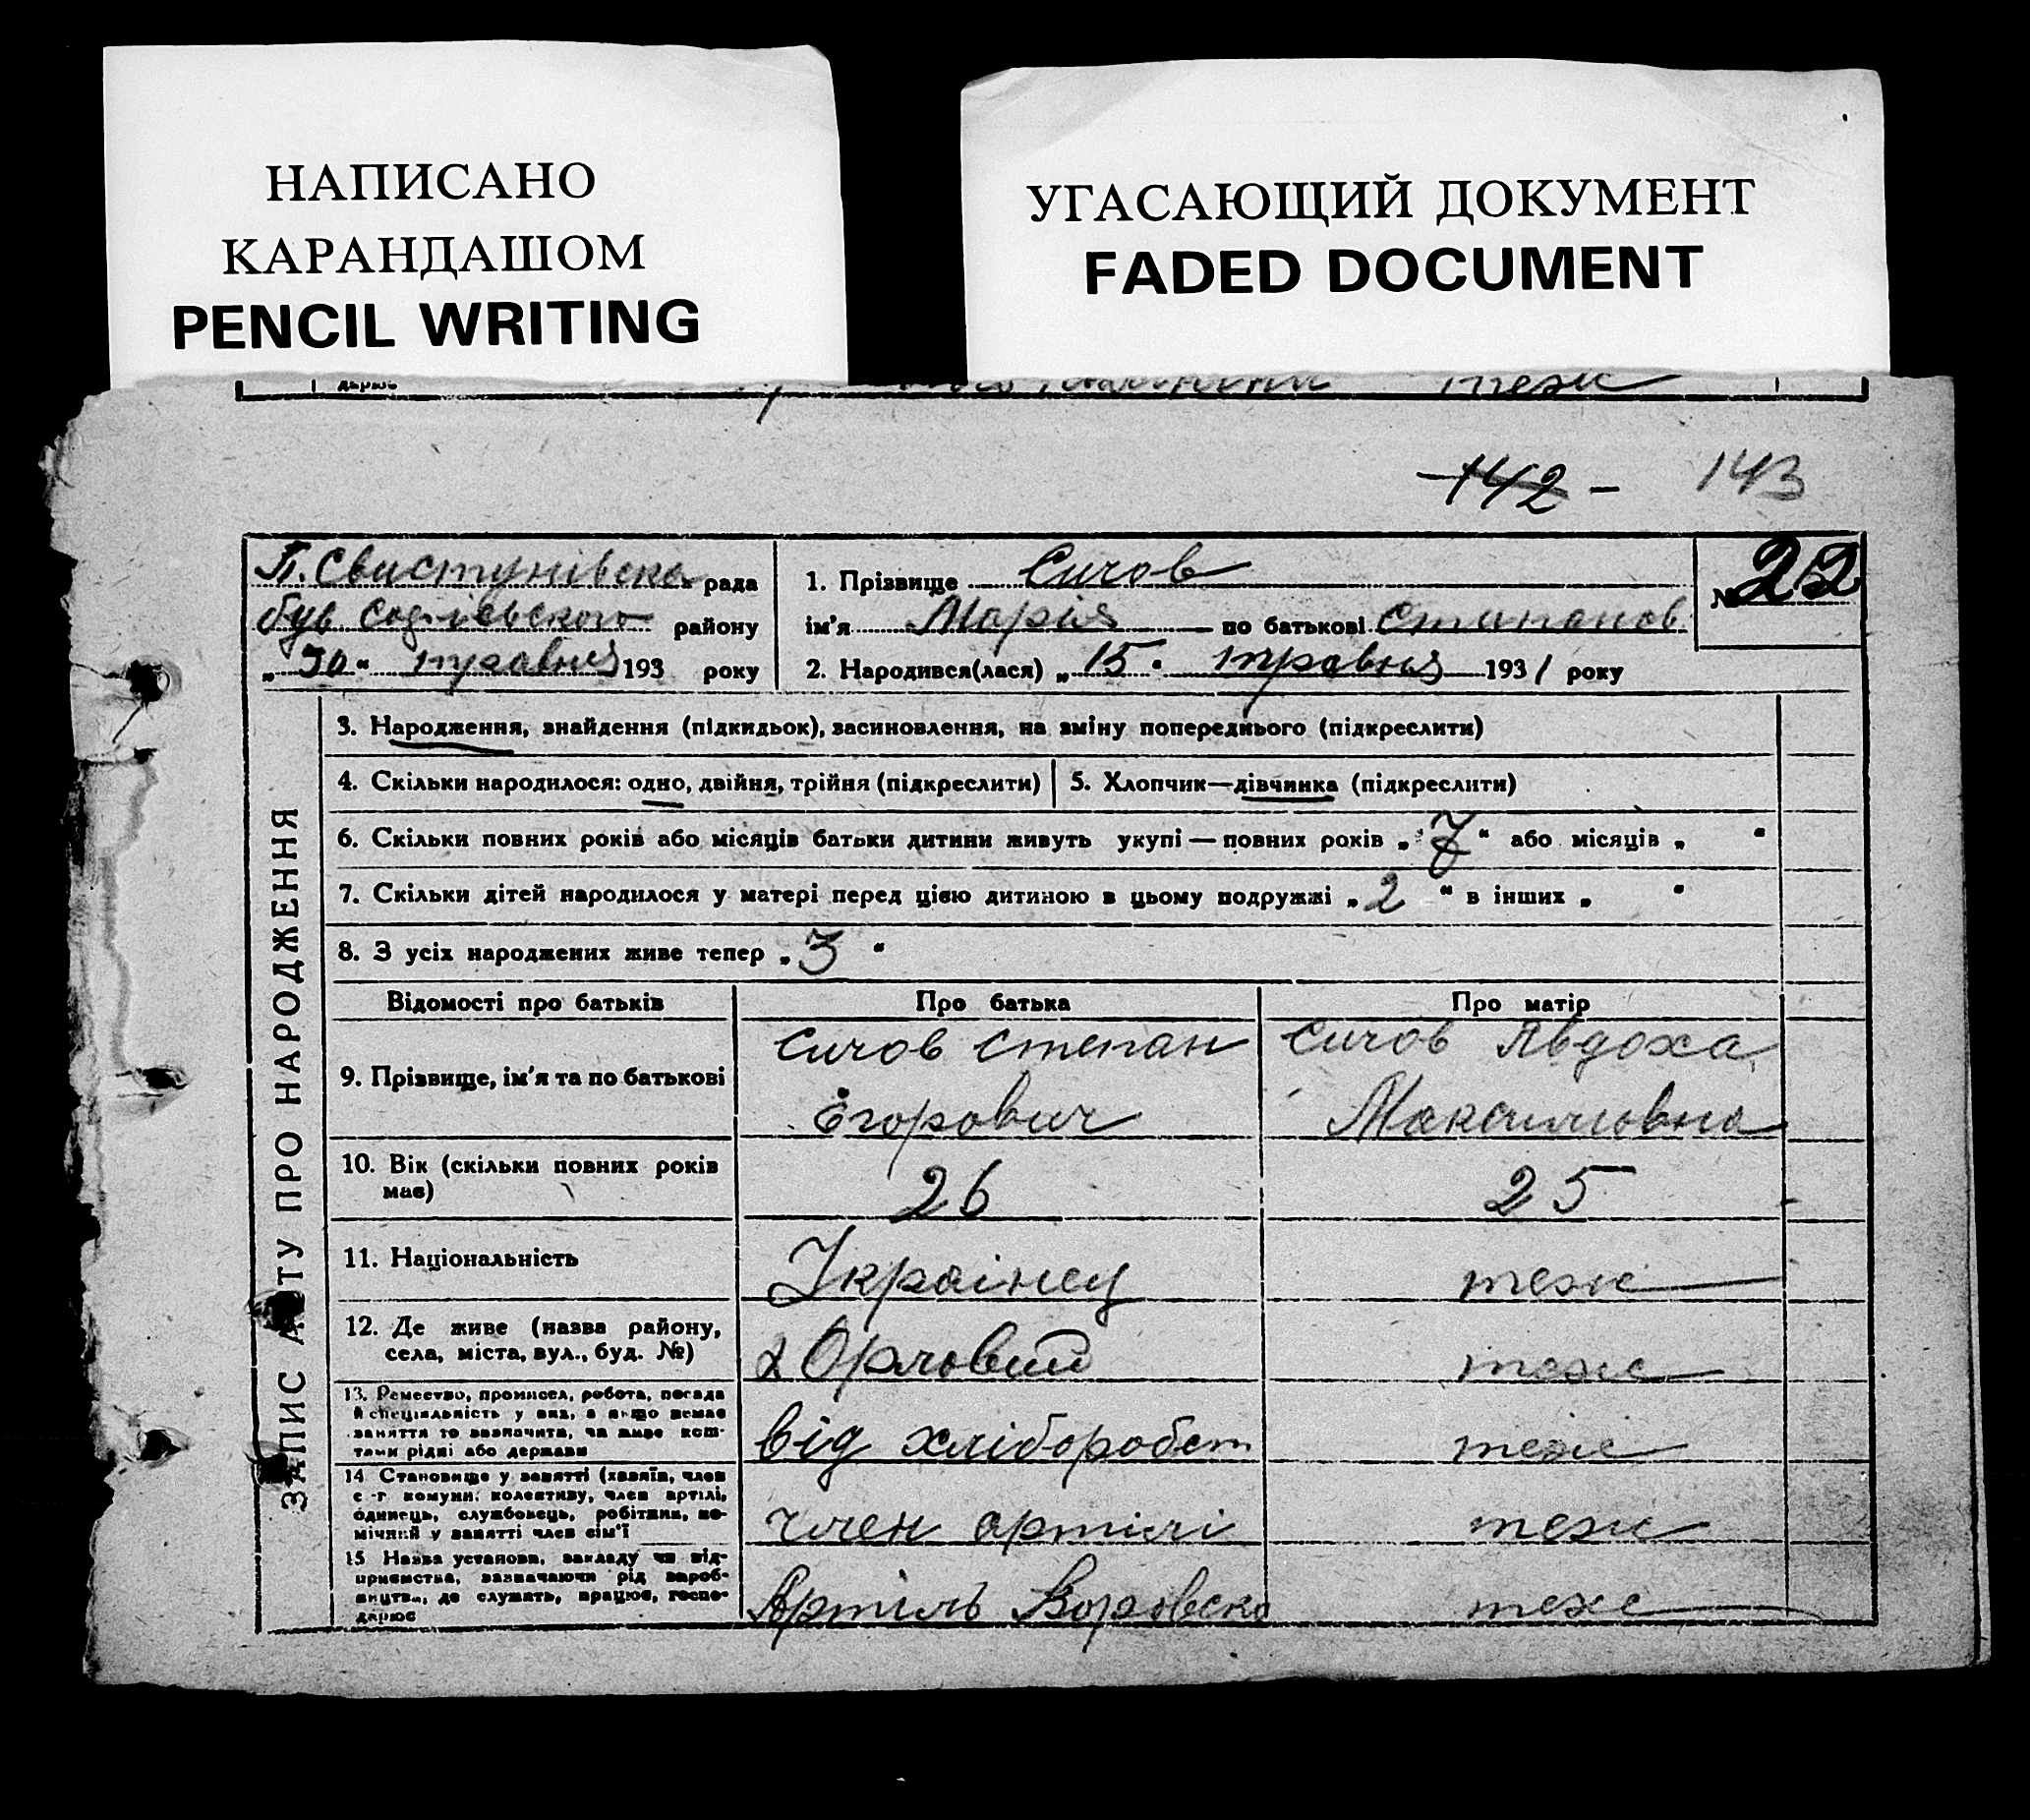 НАПИСАНО
КАРАНДАШОМ
PENCIL WRITING
УГАСАЮЩИЙ ДОКУМЕНТ
FADED DOCUMENT
дарює теж
142 - 143
П. Свистунівська рада
був района
"30" травня 193 року
1. Прізвище Сичов
ім'я Марія по батькові Стипанов
2. Народився(лася) „15" травня 1931 року
№ 22
ЗАПИС АКТУ ПРО НАРОДЖЕННЯ
3. Народження, знайдення (підкидьок), засиновлення, на зміну попереднього (підкреслити)
4. Скільки народилося: одно, двійня, трійня (підкреслити) 5. Хлопчик—дівчинка (підкреслити)
6. Скільки повних років або місяців батьки дитини живуть укупі — повних років „7" або місяців „ "
7. Скільки дітей народилося у матері перед цією дитиною в цьому подружжі „2" в інших „ "
8. З усіх народжених живе тепер „3"
Відомості про батьків Про батька Про матір
9. Прізвище, ім'я та по батькові
Сичов Степан
Єгорович
Сичов Явдоха
Максимовна
10. Вік (скільки повних років
має)
26 25
11. Національність Українец теж
12. Де живе (назва району,
села, міста, вул., буд. №)
х Орловий теж
13. Ремество, промисел, робота, посада
й спеціяльність у них, а якщо немає
заняття то зазначити, чи живе кош-
тами рідні або держави
від хліборобст теж
14. Становище у занятті (хазяїн, член
с.-г комуни, колективу, член артілі,
одинець, службовець, робітник, по-
мічний у занятті член сім'ї
член артілі теж
15 Назва установи, закладу чи під-
приємства, зазначаючи рід вироб-
ництва, де служить, працює, госпо-
дарює
Артіль Воровско теж